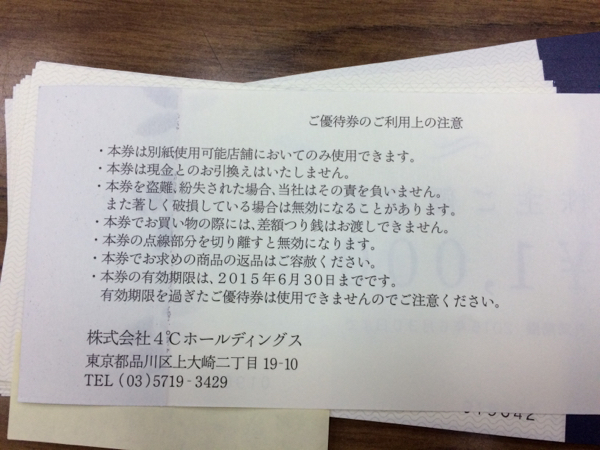 ご優待券のご利用上の注意
・本券は別紙使用可能店舗においてのみ使用できます。
・本券は現金とのお引換えはいたしません。
・本券を盗難、紛失された場合、当社はその責を負いません。
また著しく破損している場合は無効になることがあります。
・本券でお買い物の際には、差額つり銭はお渡しできません。
・本券の点線部分を切り離すと無効になります。
・本券でお求めの商品の返品はご容赦ください。
・本券の有効期限は、2015年6月30日までです。
有効期限を過ぎたご優待券は使用できませんのでご注意ください。
株式会社4℃ホールディングス
東京都品川区上大崎二丁目19-10
TEL (03)5719-3429